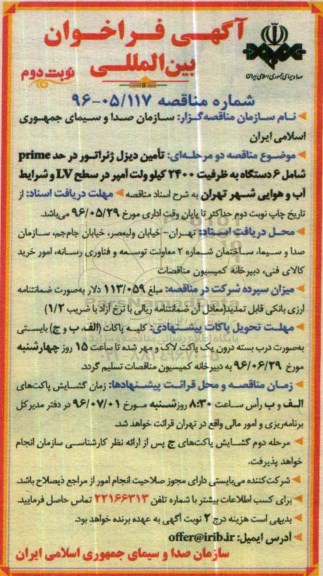 آگهی فراخوان
بین‌المللی
نوبت دوم
شماره مناقصه ۹۶-۰۵/۱۱۷
نام سازمان مناقصه‌گزار: سازمان صدا و سیمای جمهوری
اسلامی ایران
موضوع مناقصه دو مرحله‌ای: تأمین دیزل ژنراتور در حد prime
شامل ۶ دستگاه به ظرفیت ۲۴۰۰ کیلو ولت آمپر در سطح LV و شرایط
آب و هوایی شهر تهران به شرح اسناد مناقصه مهلت دریافت اسناد: از
تاریخ چاپ نوبت دوم حداکثر تا پایان وقت اداری مورخ ۹۶/۰۵/۲۹ می‌باشد.
محل دریافت اسناد: تهران- خیابان ولیعصر، خیابان جام‌جم، سازمان
صدا و سیما، ساختمان شماره ۲ معاونت توسعه و فناوری رسانه، امور خرید
کالای فنی، دبیرخانه کمیسیون مناقصات
میزان سپرده شرکت در مناقصه: مبلغ ۱۱۳/۰۵۹ دلار به‌صورت ضمانتنامه
ارزی بانکی قابل تمدید(معادل آن ضمانتنامه ریالی با نرخ آزاد با ضریب ۱/۲)
مهلت تحویل پاکات پیشنهادی: کلیه پاکات (الف ب و ج) بایستی
به‌صورت درب بسته درون یک پاکت لاک و مهر شده تا ساعت ۱۵ روز چهارشنبه
مورخ ۹۶/۰۶/۲۹ به دبیرخانه کمیسیون مناقصات تسلیم گردد.
زمان مناقصه و محل قرائت پیشنهادها: زمان گشایش پاکت‌های
الف و ب رأس ساعت ۸:۳۰ روزشنبه مورخ ۹۶/۰۷/۰۱ در دفتر مدیر کل
برنامه‌ریزی و امور مالی واقع در تهران قرائت خواهد شد.
مرحله دوم گشایش پاکت‌های ج پس از ارائه نظر کارشناسی سازمان انجام
خواهد پذیرفت.
شرکت‌کننده می‌بایستی دارای مجوز صلاحیت انجام امور از مراجع ذیصلاح باشد.
برای کسب اطلاعات بیشتر با شماره تلفن ۲۲۱۶۶۳۱۳ تماس حاصل فرمایید.
بدیهی است هزینه درج ۲ نوبت آگهی به عهده برنده خواهد بود.
آدرس ایمیل: offer@irib.ir
سازمان صدا و سیمای جمهوری اسلامی ایران